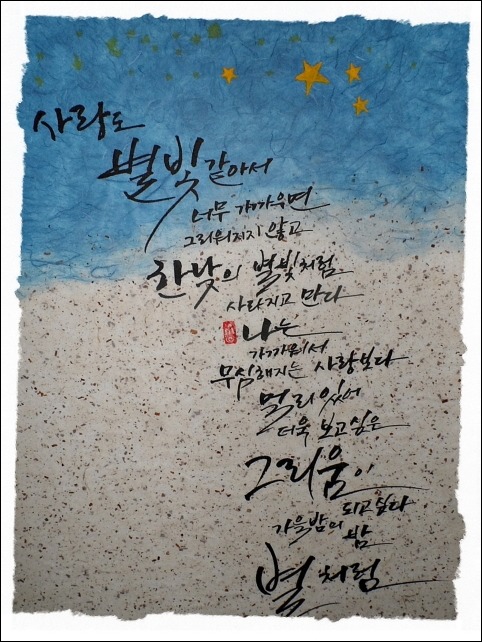 사랑도
별빛 같아서
너무 가까우면
그리워지지 않고
한낮의 별빛처럼
사라지고 만다
나는
가까워서
무심해지는 사랑보다
멀리 있어
더욱 보고싶은
그리움이
되고싶다
가을밤의
밤
별처럼